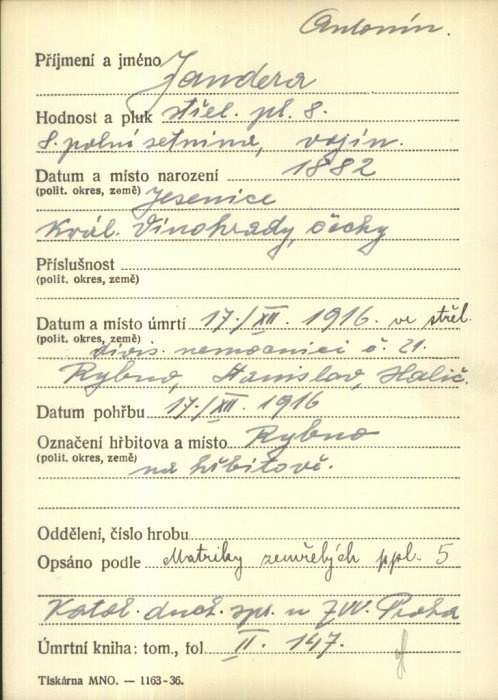 Antonín.
Příjmení a jméno Jandera
Hodnost a pluk střel. pl. 8.
8. polní setnina, vojín.
Datum a místo narození 1882
(polit. okres, země) Jesenice
Král. Vinohrady, Čechy
Příslušnost
(polit. okres, země)
Datum a místo úmrtí 17./XII. 1916. ve střel.
(polit. okres, země) divis. nemocnici č. 21.
Rybno, Stanislav, Halič.
Datum pohřbu 17./XII. 1916
Označení hřbitova a místo Rybno
(polit. okres, země) na hřbitově.
Oddělení, číslo hrobu
Opsáno podle Matriky zemřelých ppl. 5
Katol. duch. spr. u ZVV. Praha
Úmrtní kniha: tom., fol II. 147.
Tiskárna MNO. — 1163-36.